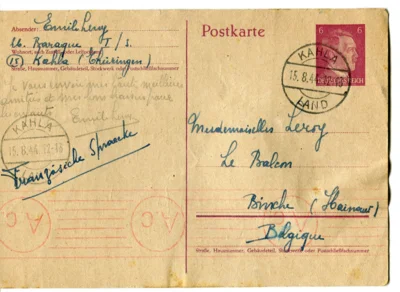 Absender: Emil Lucy
Lt. Baraque I/5.
Wohnort, auch Zustell- oder Leitpostamt
(15) Kahla (Thüringen)
Straße, Hausnummer, Gebäudeteil, Stockwerk oder Postschließfachnummer
Je vous
et mes pour
Emil Lucy
KAHLA
15.8.44.12-18
Französische Sprache
Postkarte
6 6
KAHLA
15.8.44
LAND
Mesdemoiselles Leroy
Le Balcon
Binche (Hainaut)
Belgique
Straße, Hausnummer, Gebäudeteil, Stockwerk oder Postschließfachnummer
Ac Ac